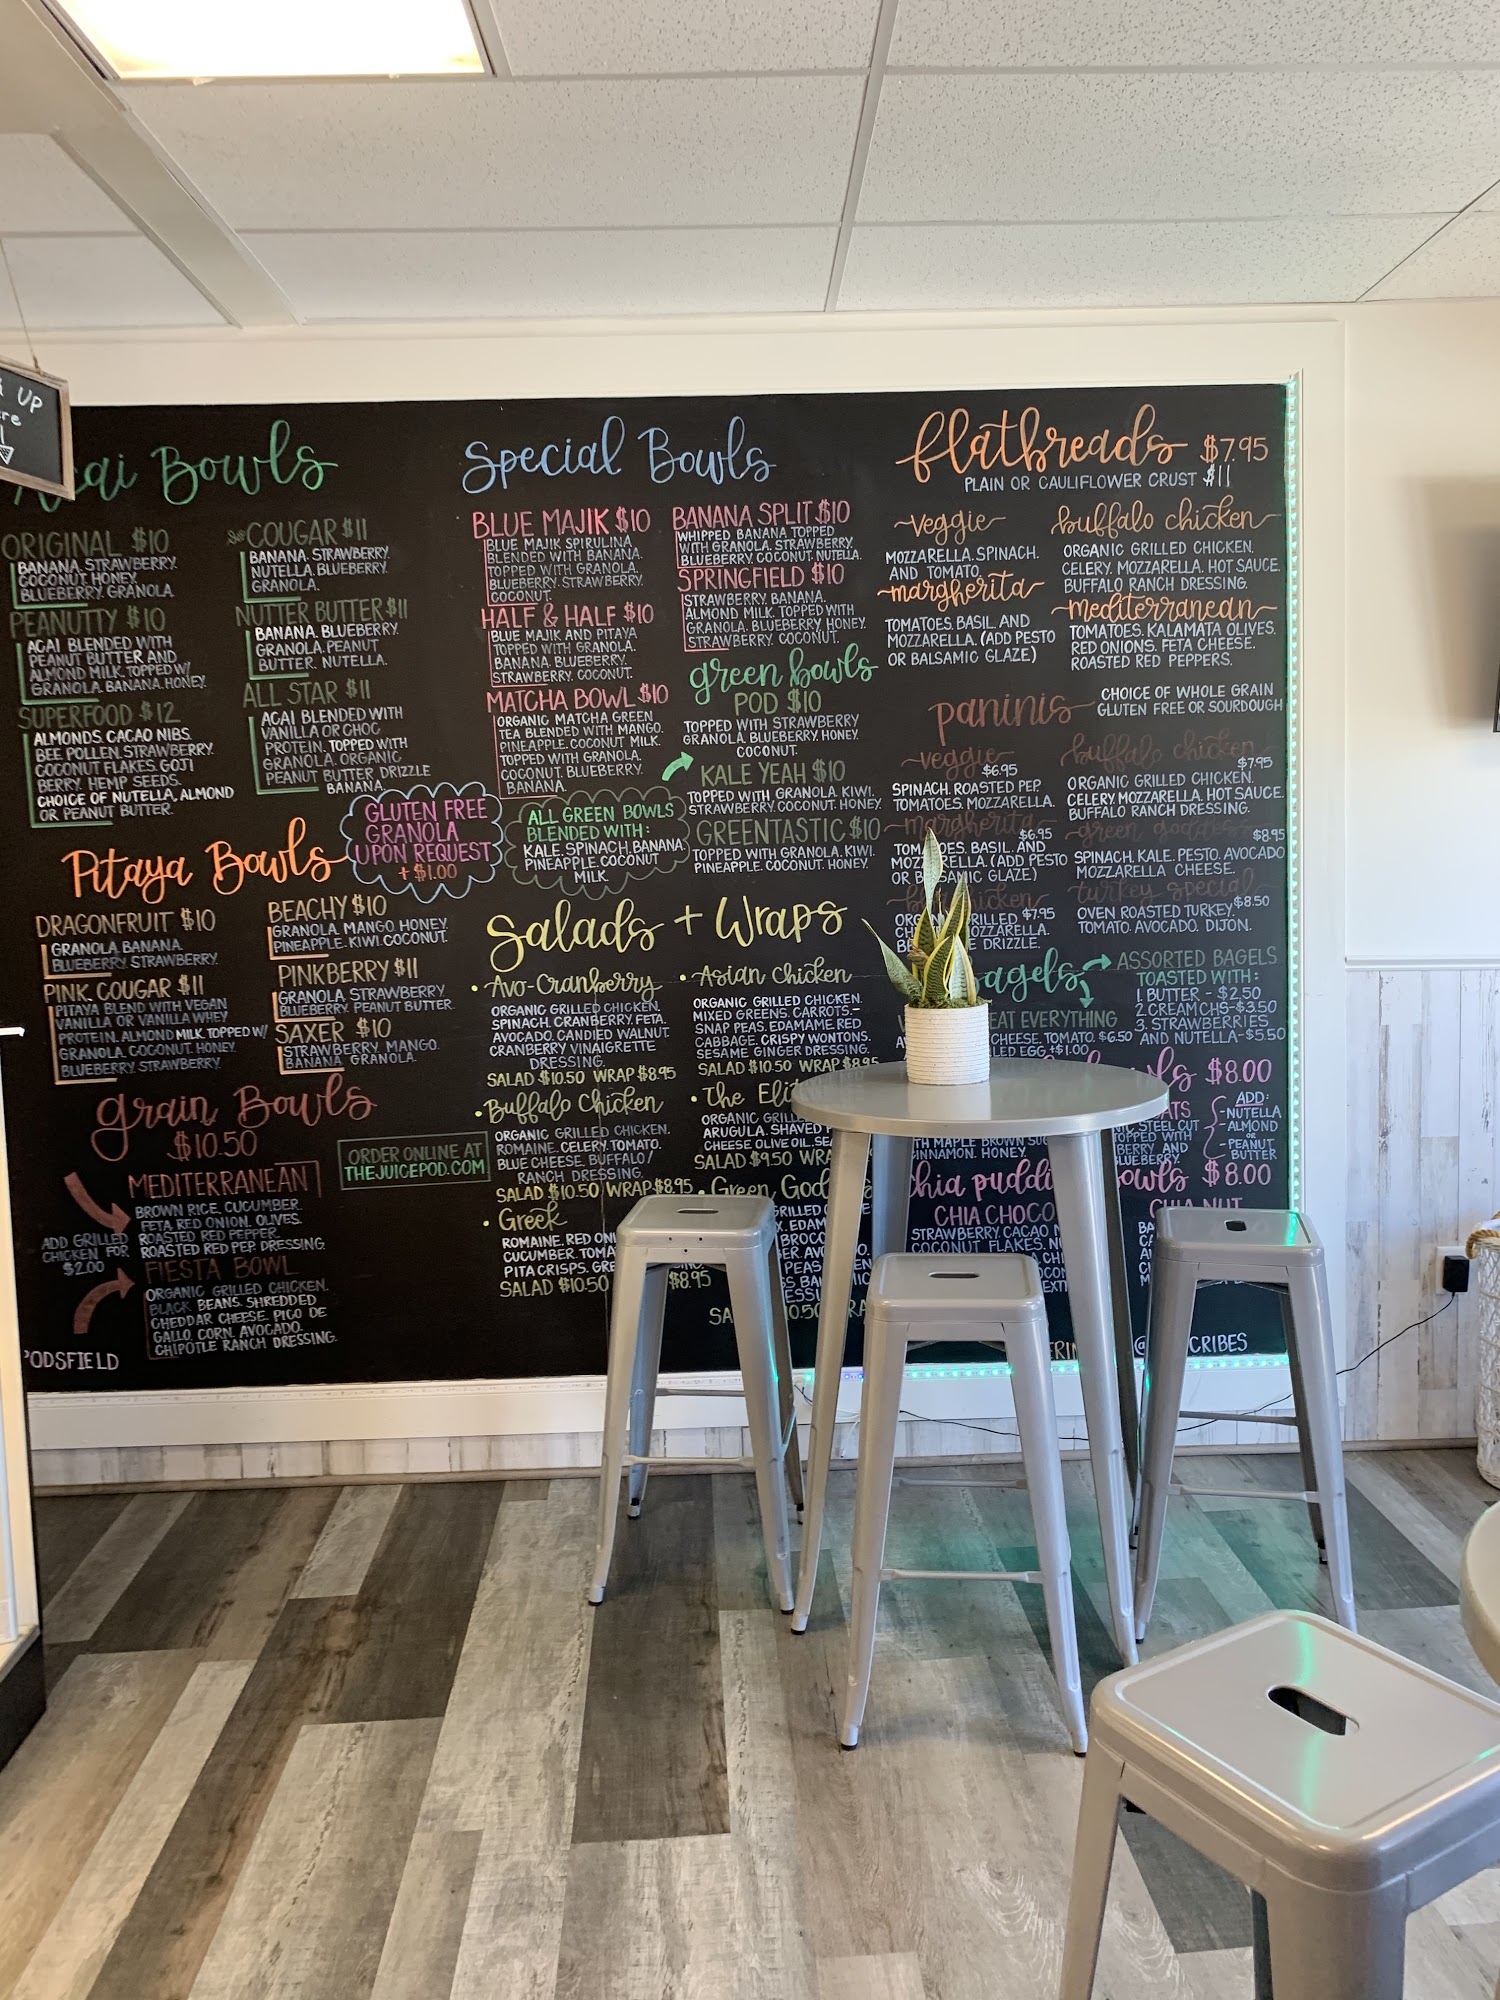 UP
Acai Bowls
ORIGINAL $10
BANANA. STRAWBERRY.
COCONUT. HONEY.
BLUEBERRY. GRANOLA.
PEANUTTY $10
ACAI BLENDED WITH
PEANUT BUTTER AND
ALMOND MILK. TOPPED W/
GRANOLA. BANANA. HONEY.
SUPERFOOD $12
ALMONDS. CACAO NIBS.
BEE POLLEN. STRAWBERRY.
COCONUT FLAKES. GOJI
BERRY. HEMP SEEDS.
CHOICE OF NUTELLA, ALMOND
OR PEANUT BUTTER.
COUGAR $11
BANANA. STRAWBERRY.
NUTELLA. BLUEBERRY.
GRANOLA.
NUTTER BUTTER $11
BANANA. BLUEBERRY.
GRANOLA. PEANUT
BUTTER. NUTELLA.
ALL STAR $11
ACAI BLENDED WITH
VANILLA OR CHOC
PROTEIN. TOPPED WITH
GRANOLA. ORGANIC
PEANUT BUTTER DRIZZLE
BANANA.
GLUTEN FREE
GRANOLA
UPON REQUEST
+ $1.00
Pitaya Bowls
DRAGONFRUIT $10
GRANOLA. BANANA.
BLUEBERRY. STRAWBERRY.
PINK COUGAR $11
PITAYA BLEND WITH VEGAN
VANILLA OR VANILLA WHEY
PROTEIN. ALMOND MILK. TOPPED W/
GRANOLA. COCONUT. HONEY.
BLUEBERRY. STRAWBERRY.
BEACHY $10
GRANOLA. MANGO. HONEY.
PINEAPPLE. KIWI. COCONUT.
PINKBERRY $11
GRANOLA. STRAWBERRY.
BLUEBERRY. PEANUT BUTTER.
SAXER $10
STRAWBERRY. MANGO.
BANANA. GRANOLA.
Grain Bowls
$10.50
MEDITERRANEAN
BROWN RICE. CUCUMBER.
FETA. RED ONION. OLIVES.
ROASTED RED PEPPER.
ROASTED RED PEP. DRESSING.
ADD GRILLED
CHICKEN FOR
$2.00
FIESTA BOWL
ORGANIC GRILLED CHICKEN.
BLACK BEANS. SHREDDED
CHEDDAR CHEESE. PICO DE
GALLO. CORN. AVOCADO.
CHIPOTLE RANCH DRESSING.
PODSFIELD
ORDER ONLINE AT
THEJUICEPOD.COM
Special Bowls
BLUE MAJIK $10
BLUE MAJIK SPIRULINA
BLENDED WITH BANANA.
TOPPED WITH GRANOLA.
BLUEBERRY. STRAWBERRY.
COCONUT.
HALF & HALF $10
BLUE MAJIK AND PITAYA
TOPPED WITH GRANOLA.
BANANA. BLUEBERRY.
STRAWBERRY. COCONUT.
MATCHA BOWL $10
ORGANIC MATCHA GREEN
TEA BLENDED WITH MANGO.
PINEAPPLE. COCONUT MILK.
TOPPED WITH GRANOLA.
COCONUT. BLUEBERRY.
BANANA.
BANANA SPLIT $10
WHIPPED BANANA TOPPED
WITH GRANOLA. STRAWBERRY.
BLUEBERRY. COCONUT. NUTELLA.
SPRINGFIELD $10
STRAWBERRY. BANANA.
ALMOND MILK. TOPPED WITH
GRANOLA. BLUEBERRY. HONEY.
STRAWBERRY. COCONUT.
green bowls
POD $10
TOPPED WITH STRAWBERRY.
GRANOLA. BLUEBERRY. HONEY.
COCONUT.
KALE YEAH $10
TOPPED WITH GRANOLA. KIWI.
STRAWBERRY. COCONUT. HONEY.
GREENTASTIC $10
TOPPED WITH GRANOLA. KIWI.
PINEAPPLE. COCONUT. HONEY.
ALL GREEN BOWLS
BLENDED WITH:
KALE. SPINACH. BANANA.
PINEAPPLE. COCONUT
MILK.
Salads + Wraps
Avo-Cranberry
ORGANIC GRILLED CHICKEN.
SPINACH. CRANBERRY. FETA.
AVOCADO. CANDIED WALNUT.
CRANBERRY VINAIGRETTE
DRESSING.
SALAD $10.50 WRAP $8.95
Buffalo Chicken
ORGANIC GRILLED CHICKEN.
ROMAINE. CELERY. TOMATO.
BLUE CHEESE. BUFFALO/
RANCH DRESSING.
SALAD $10.50 WRAP $8.95
Greek
ROMAINE. RED
CUCUMBER.
PITA CRISPS.
SALAD $10.50 $8.95
Asian Chicken
ORGANIC GRILLED CHICKEN.
MIXED GREENS. CARROTS.
SNAP PEAS. EDAMAME. RED
CABBAGE. CRISPY WONTONS.
SESAME GINGER DRESSING.
SALAD $10.50 WRAP $8.95
The
ORGANIC
ARUGULA. SHAVED
CHEESE. OLIVE OIL.
SALAD $9.50
Green
flatbreads $7.95
PLAIN OR CAULIFLOWER CRUST $11
veggie
MOZZARELLA. SPINACH.
AND TOMATO.
margherita
TOMATOES. BASIL. AND
MOZZARELLA. (ADD PESTO
OR BALSAMIC GLAZE)
buffalo chicken
ORGANIC GRILLED CHICKEN.
CELERY. MOZZARELLA. HOT SAUCE.
BUFFALO RANCH DRESSING.
mediterranean
TOMATOES. KALAMATA OLIVES.
RED ONIONS. FETA CHEESE.
ROASTED RED PEPPERS.
paninis
CHOICE OF WHOLE GRAIN
GLUTEN FREE OR SOURDOUGH
veggie
$6.95
SPINACH. ROASTED PEP.
TOMATOES. MOZZARELLA.
margherita
$6.95
TOMATOES. BASIL. AND
MOZZARELLA. (ADD PESTO
OR BALSAMIC GLAZE)
chicken
$7.95
DRIZZLE.
buffalo chicken
$7.95
ORGANIC GRILLED CHICKEN.
CELERY. MOZZARELLA. HOT SAUCE.
BUFFALO RANCH DRESSING.
green goddess
$8.95
SPINACH. KALE. PESTO. AVOCADO
MOZZARELLA CHEESE.
turkey special
$8.50
OVEN ROASTED TURKEY.
TOMATO. AVOCADO. DIJON.
bagels
ASSORTED BAGELS
TOASTED WITH:
1. BUTTER - $2.50
2. CREAM CHS - $3.50
3. STRAWBERRIES
AND NUTELLA - $5.50
EVERYTHING
CHEESE. TOMATO. $6.50
EGG +$1.00
$8.00
ADD:
-NUTELLA
-ALMOND
OR
-PEANUT
BUTTER
STEEL CUT
TOPPED WITH
AND
BLUEBERRY
WITH MAPLE BROWN
CINNAMON. HONEY.
$8.00
CHIA NUT
STRAWBERRY. CACAO
COCONUT FLAKES.